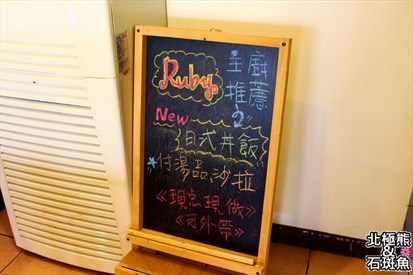 Ruby
主廚
推薦
New
日式丼飯
付湯品沙拉
《現点現做》
《可外帶》
北極熊
&
石斑魚